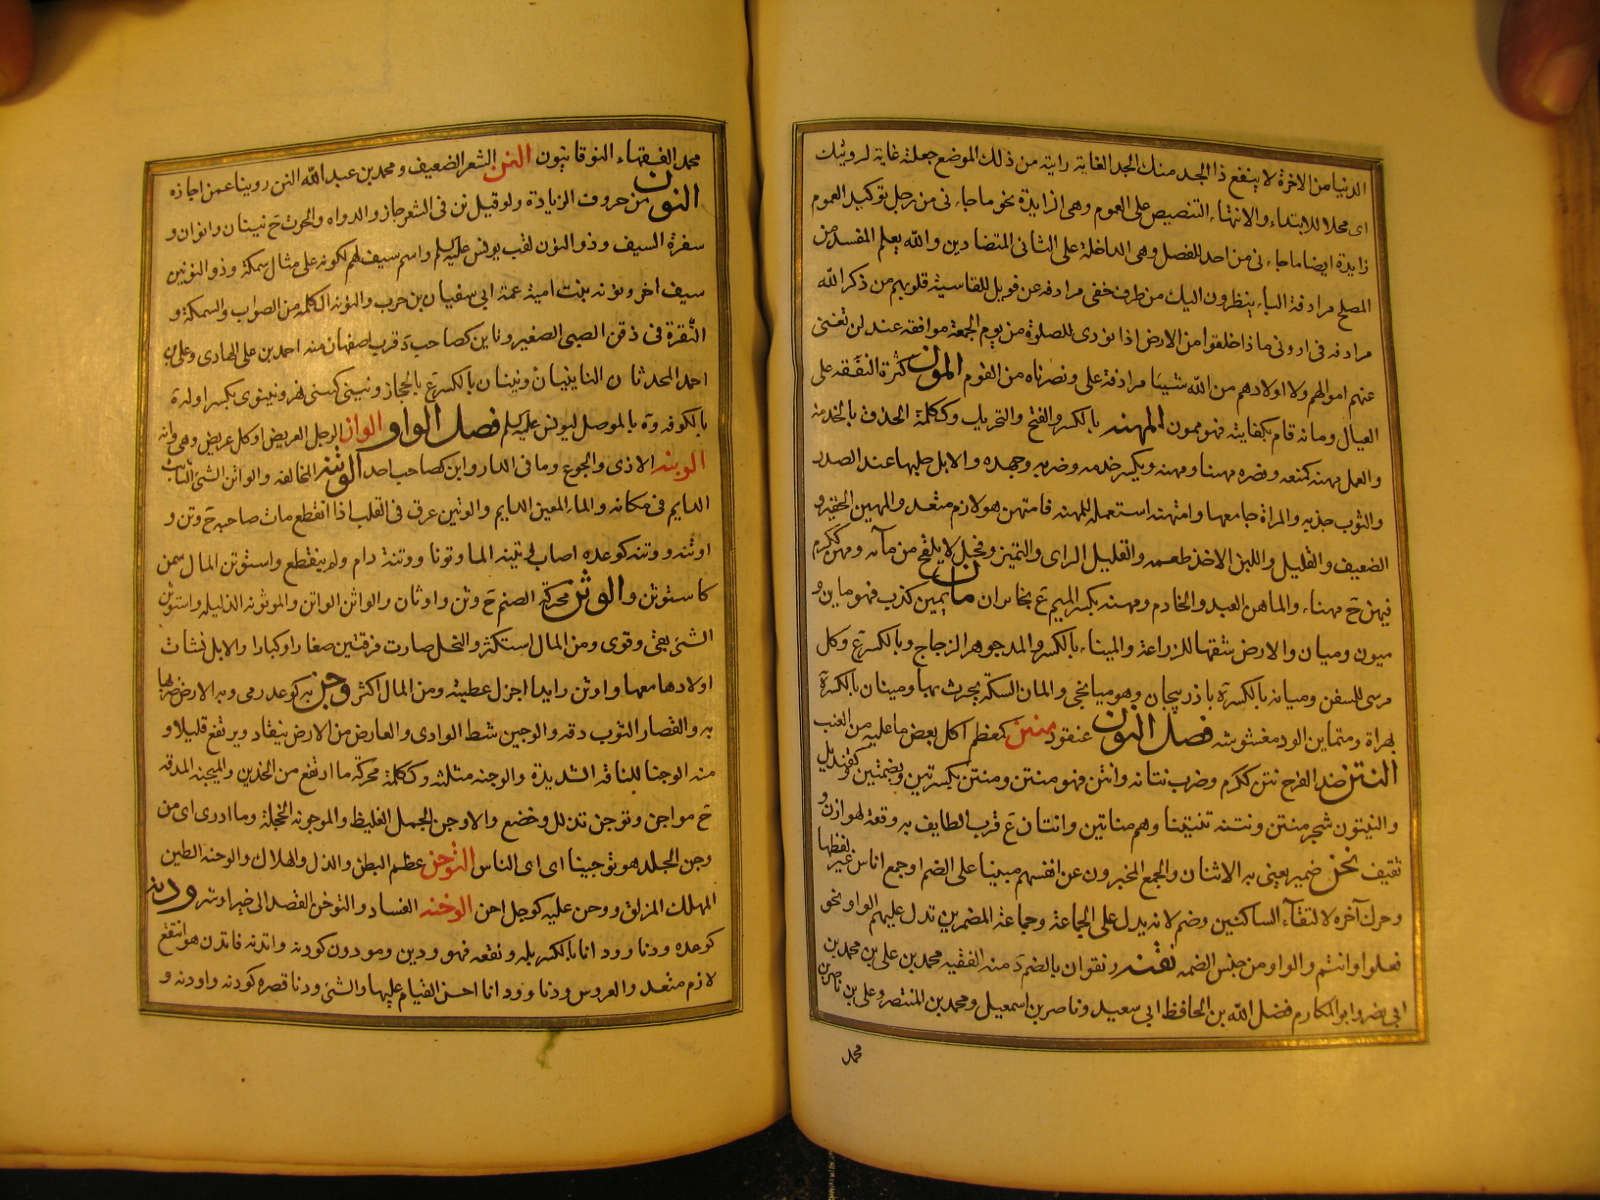 الدنيا من الاخرة لا ينفع ذا الجد منك الجد الغاية رايته من ذلك الموضع جعلته غاية لرؤيتك
اى محلا للابتداء والانتهاء التنصيص على العموم وهى الزايدة نحو ما جاءنى من رجل توكيد العموم
زايدة ايضا ما جاءنى من احد الفصل وهى الداخلة على الثانى المتضادين والله يعلم المفسد من
المصلح مرادفة الباء ينظرون اليك من طرف خفى مرادفة عن فويل للقاسية قلوبهم من ذكر الله
مرادفة فى ارونى ماذا خلقوا من الارض اذا نودى للصلوة من يوم الجمعة موافقة عند لن تغنى
عنهم اموالهم ولا اولادهم من الله شيئا مرادفة على ونصرناه من القوم المون كثرة النفقة على
العيال ومانه قام بكفايته فهو ممون المهنة بالكسر والفتح والتحريك وككلمة الحذق بالخدمة
والعمل مهنه كمنعه ونصره مهنا ومهنة ويكسر خدمه وضربه وجهده والابل حلبها عند الصدر
والثوب جذبه والمراة جامعها وامتهنه استعمله للمهنة فامتهن هو لازم متعد والمهين الحقير و
الضعيف والقليل واللبن الاخذ طعمه والقليل الراى والتميز وفحل لا يلقح من مائه ومهن ككرم
فيهن ج مهناء والماهن العبد والخادم ومهنة بكسر الميم ع بخابران مان يمين كذب فهو ماين و
ميون وميان والارض شقها للزراعة والميناء بالكسر والمد جوهر الزجاج وبالكسر ع وكل
مرسى للسفن وميانه بالكسر ة باذربيجان وهو ميانجى والمان السكة يحرث بها وميان بالكسر ة
بهراة ومتماين الود مغشوشه فصل النون عنقود منتن كمعظم اكل بعض ما عليه من العنب
النتن ضد الفرح نتن ككرم وضرب نتانة وانتن فهو منتن ومنتن بكسرتين وبضمتين وكقنديل
والنيتون شجر منتن ونتنه تنتينا وهم مناتين وانتان ع قرب الطايف به وقعة لهوازن و
ثقيف نحن ضمير يعنى به الاثنان والجمع المخبرون عن انفسهم مبينا على الضم او جمع انا من غير لفظها
وحرك آخره لالتقاء الساكنين وضم لانه يدل على الجماعة وجماعة المضمرين تدل عليهم الواو نحو
فعلوا وانتم والواو من جنس الضمة نقنه ونقوان بالضم د منه الفقيه محمد بن على بن محمد بن
ابى نصر وابو المكارم فضل الله بن الحافظ ابى سعيد وناصر بن اسمعيل ومحمد بن المنتصر وعلى بن ناصر بن
محمد
محمد الفقهاء النوقانيون النن الشعر الضعيف ومحمد بن عبد الله النن روينا عمن اجازه
النون من حروف الزيادة ولو قيل نن فى الشعر جاز والدواة والحوت ج نينان وانوان و
سفرة السيف وذو النون لقب يونس عليلم واسم سيف لهم لكونه على مثال سمكة وذو النونين
سيف اخر ونونة بنت امية عمة ابى سفيان بن حرب والنونة الكلمة من الصواب والسمكة و
النقرة فى ذقن الصبى الصغير وناين كصاحب د قرب اصفهان منه احمد بن على الهادى وعلى بن
احمد المحدثان الناينيان ونينان بالكسر ع بالحجاز ونينى كسينى نهر ونينوى بكسر اوله ة
بالكوفة وة بالموصل ليونس عليلم فصل الواو الوان الرجل العريض او كل عريض وهى وانة
الوبنة الاذى والجوع وما فى الدار وابن كصاحب احد الوتنة المخالفة والواتن الشئ الثابت
الدايم فى مكانه والماء المعين الدايم والوتين عرق فى القلب اذا انقطع مات صاحبه ج وتن و
اوتنه ووتنه كوعده اصاب وتينه الماء وتونا ووتنة دام ولم ينقطع واستوتن المال سمن
كاستوثن والوثن محركة الصنم ج وثن واوثان والواثن الواتن والموثونة الذليلة واستوثن
الشئ بقى وقوى ومن المال استكثر والنخل صارت فرقتين صغارا وكبارا والابل نشات
اولادها معها واوثن زايدا اجزل عطيته ومن المال اكثر وجن به كوعد رمى وبه الارض ضربها
به والقصار الثوب دقه والوجين شط الوادى والعارض من الارض ينقاد ويرتفع قليلا و
منه الوجناء للناقة الشديدة والوجنة مثلثة وككلمة محركة ما ارتفع من الخدين والميجنة المدقة
ج مواجن وتوجن تذلل وخضع والاوجن الجمل الغليظ والموجونة الخجلة وما ادرى اى من
وجن الجلد هو توجينا اى اى الناس التوحن عظم البطن والذل والهلاك والوحنة الطين
المهلك المزلق ووحن عليه كوجل احن الوخنة الفساد والتوخن القصد الى خير او شر ودنه
كوعده ودنا وودانا بالكسر بله ونقعه فهو ودين ومودون كودنه واتدنه فاتدن هو انتقع
لازم متعد والعروس ودنا وودانا احسن القيام عليها والشئ ودنا قصره كودنه واودنه و